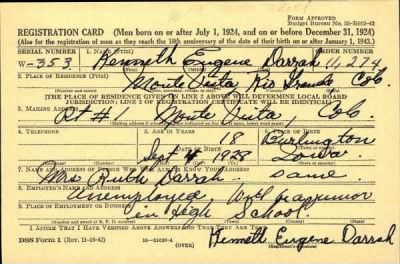 Form Approved
Budget Bureau No. 33-R012-42
REGISTRATION CARD (Men born on or after July 1, 1924, and on or before December 31, 1924)
(Also for the registration of men as they reach the 18th anniversary of the date of their birth on or after January 1, 1943.)
SERIAL NUMBER 1. NAME (Print) ORDER NUMBER
W-353 Kenneth Eugene Darrah 11,274
2. PLACE OF RESIDENCE (Print)
Monte Vista Rio Grande Colo.
[THE PLACE OF RESIDENCE GIVEN ON LINE 2 ABOVE WILL DETERMINE LOCAL BOARD
JURISDICTION; LINE 2 OF REGISTRATION CERTIFICATE WILL BE IDENTICAL]
3. MAILING ADDRESS
Rt #1 Monte Vista, Colo.
4. TELEPHONE 5. AGE IN YEARS 6. PLACE OF BIRTH
18 Burlington
DATE OF BIRTH
Sept 4 Iowa
7. NAME AND ADDRESS OF PERSON WHO WILL ALWAYS KNOW YOUR ADDRESS
Mrs. Ruth Darrah, same
8. EMPLOYER'S NAME AND ADDRESS
Unemployed
9. PLACE OF EMPLOYMENT OR BUSINESS
in High School.
I AFFIRM THAT I HAVE VERIFIED ABOVE ANSWERS AND THAT THEY ARE TRUE.
DSS Form 1 (Rev. 11-16-42) (OVER) Kenneth Eugene Darrah